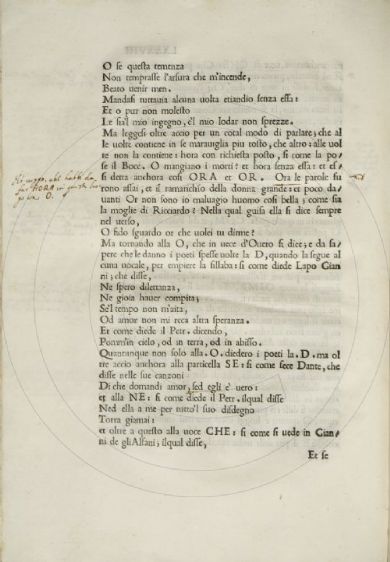 O se questa temenza
Non temprasse l'arsura che m'incende,
Beato uenir men.
Mandasi tuttauia alcuna uolta etiandio senza essa:
Et o pur non molesto
Le sia'l mio ingegno, e'l mio lodar non sprezze.
Ma leggesi oltre accio per un cotal modo di parlare; che al
le uolte contiene in se marauiglia piu tosto, che altro: alle uol
te non la contiene: hora con richiesta posto, si come la po/
se il Bocc. O mangiano i morti? et hora senza essa: et es/
si detta anchora cosi ORA et OR. Ora le parole fu
rono assai, et il ramarichio della donna grande: et poco da/
uanti Or non sono io maluagio huomo cosi bella; come sia
la moglie di Ricciardo? Nella qual guisa ella si dice sempre
nel uerso,
O fido sguardo or che uolei tu dirme?
Ma tornando alla O, che in uece d'Ouero si dice; e da sa/
pere che le danno i poeti spesse uolte la D, quando la segue al
cuna uocale, per empiere la sillaba: si come diede Lapo Gian
ni; che disse,
Ne spero dilettanza,
Ne gioia hauer compita;
Se'l tempo non m'aita,
Od amor non mi reca altra speranza.
Et come diede il Petr. dicendo,
Pommi in cielo, od in terra, od in abisso.
Quantunque non solo alla .O. diedero i poeti la .D. ma ol
tre accio anchora alla particella SE: si come fece Dante, che
disse nelle sue canzoni
Di che domandi amor, sed egli e' uero:
et alla NE: si come diede il Petr. ilqual disse
Ned ella a me per tutto'l suo disdegno
Torra giamai:
et oltre a questo alla uoce CHE: si come si uede in Gian/
ni de gli Alfani; ilqual disse,
Et se